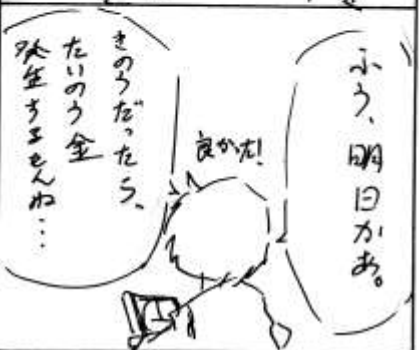 ふう、明日かあ。
良かった!
きのうだったら、
たいのう金
発生するもんね…